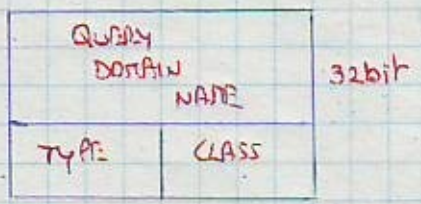 QUERY
DOMAIN
NAME
32bit
TYPE
CLASS